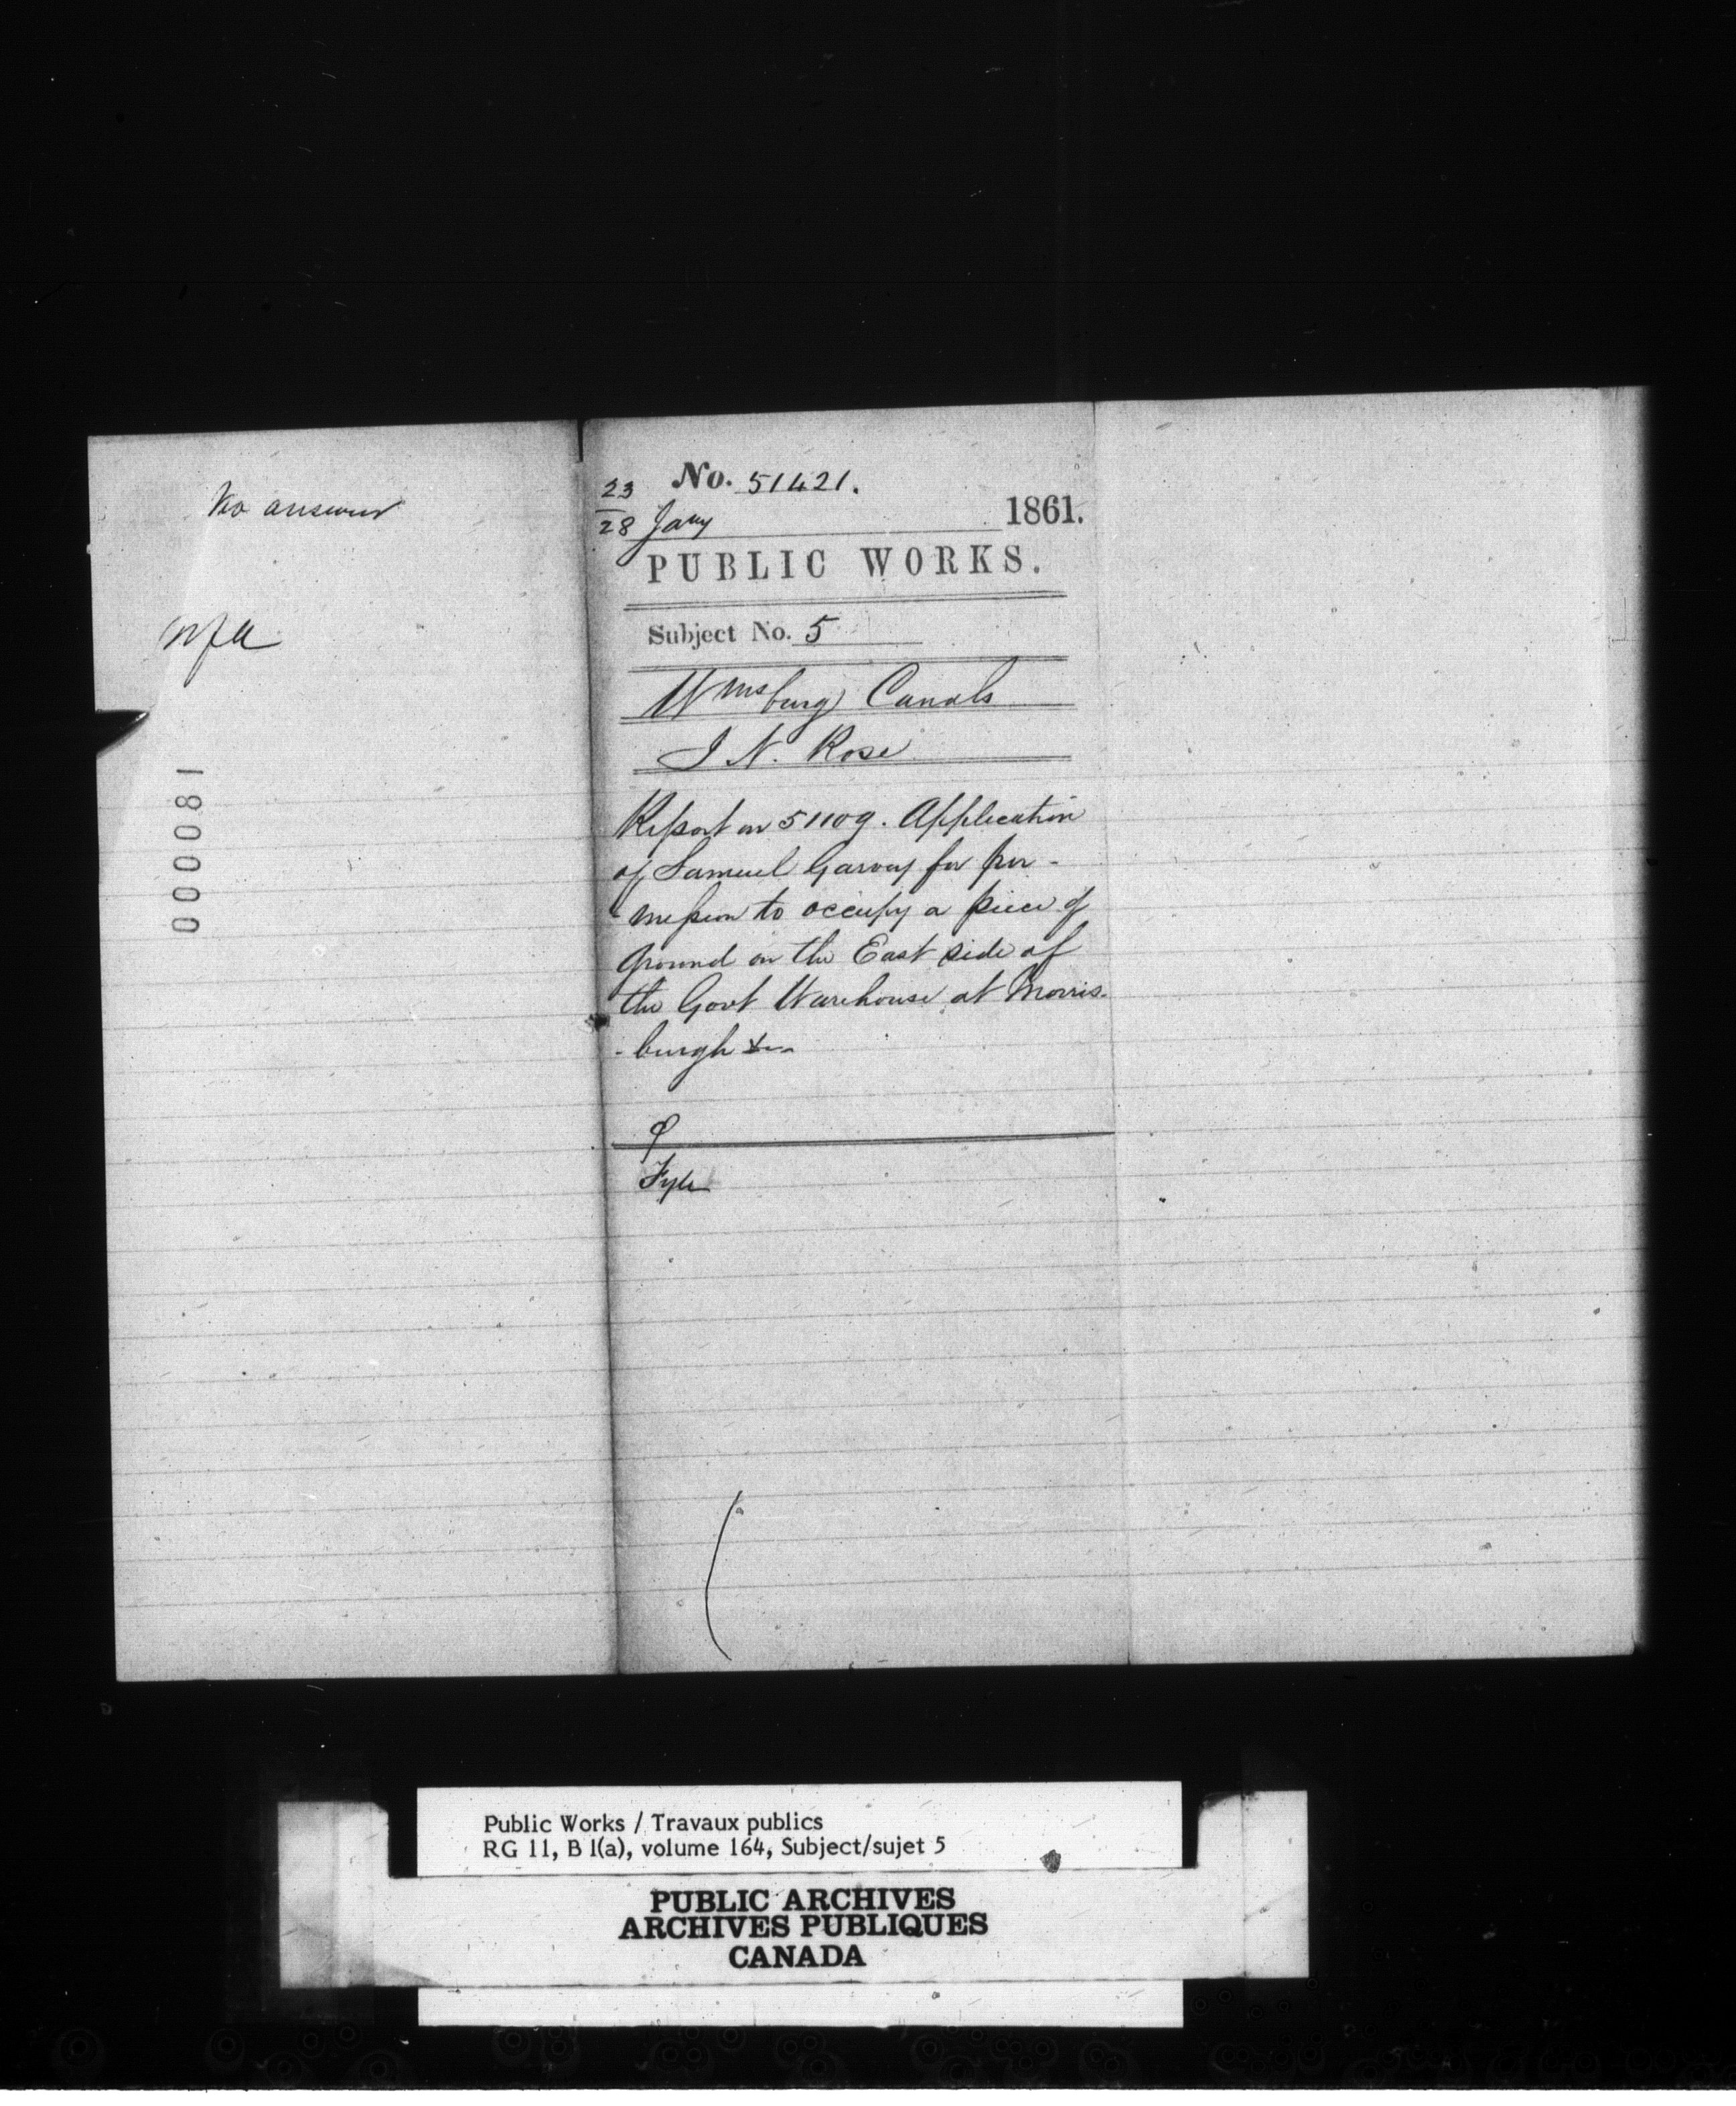 No answer
000081
No. 51421.
23
28 Jany 1861.
PUBLIC WORKS.
Subject No. 5
Wmsburg Canals
I N. Rose
Report on 51109. Application
of Samuel Garvey for per-
-mission to occupy a piece of
ground on the East side of
the Govt Warehouse at Morris-
-burgh &c
Fyle
Public Works / Travaux publics
RG 11, B 1(a), volume 164, Subject/sujet 5
PUBLIC ARCHIVES
ARCHIVES PUBLIQUES
CANADA